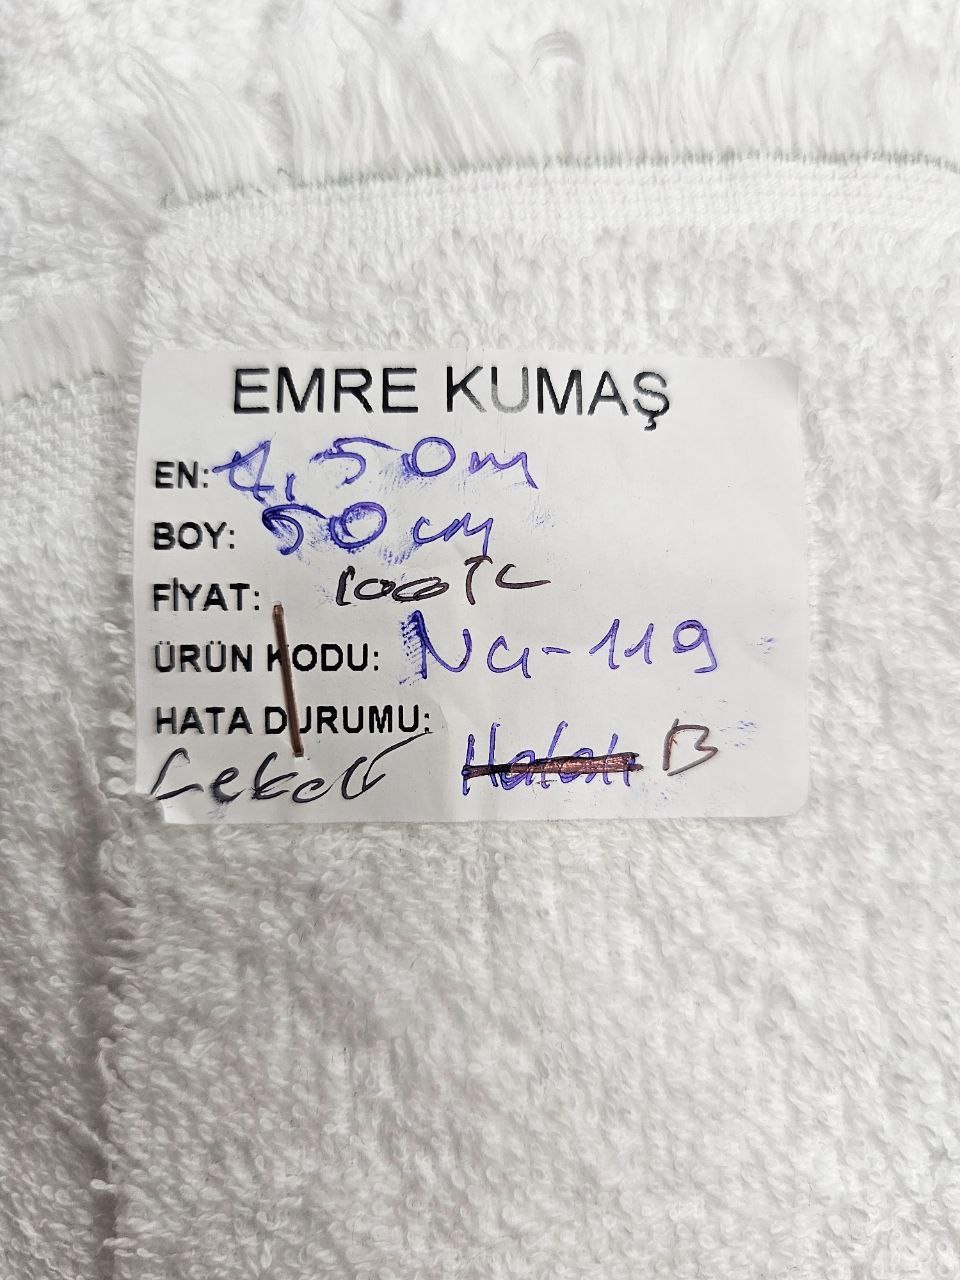 EMRE KUMAŞ
EN: 1,50m
BOY: 50 cm
FİYAT: 100 TL
ÜRÜN KODU: NG-119
HATA DURUMU:
Lekeli Hatalı B